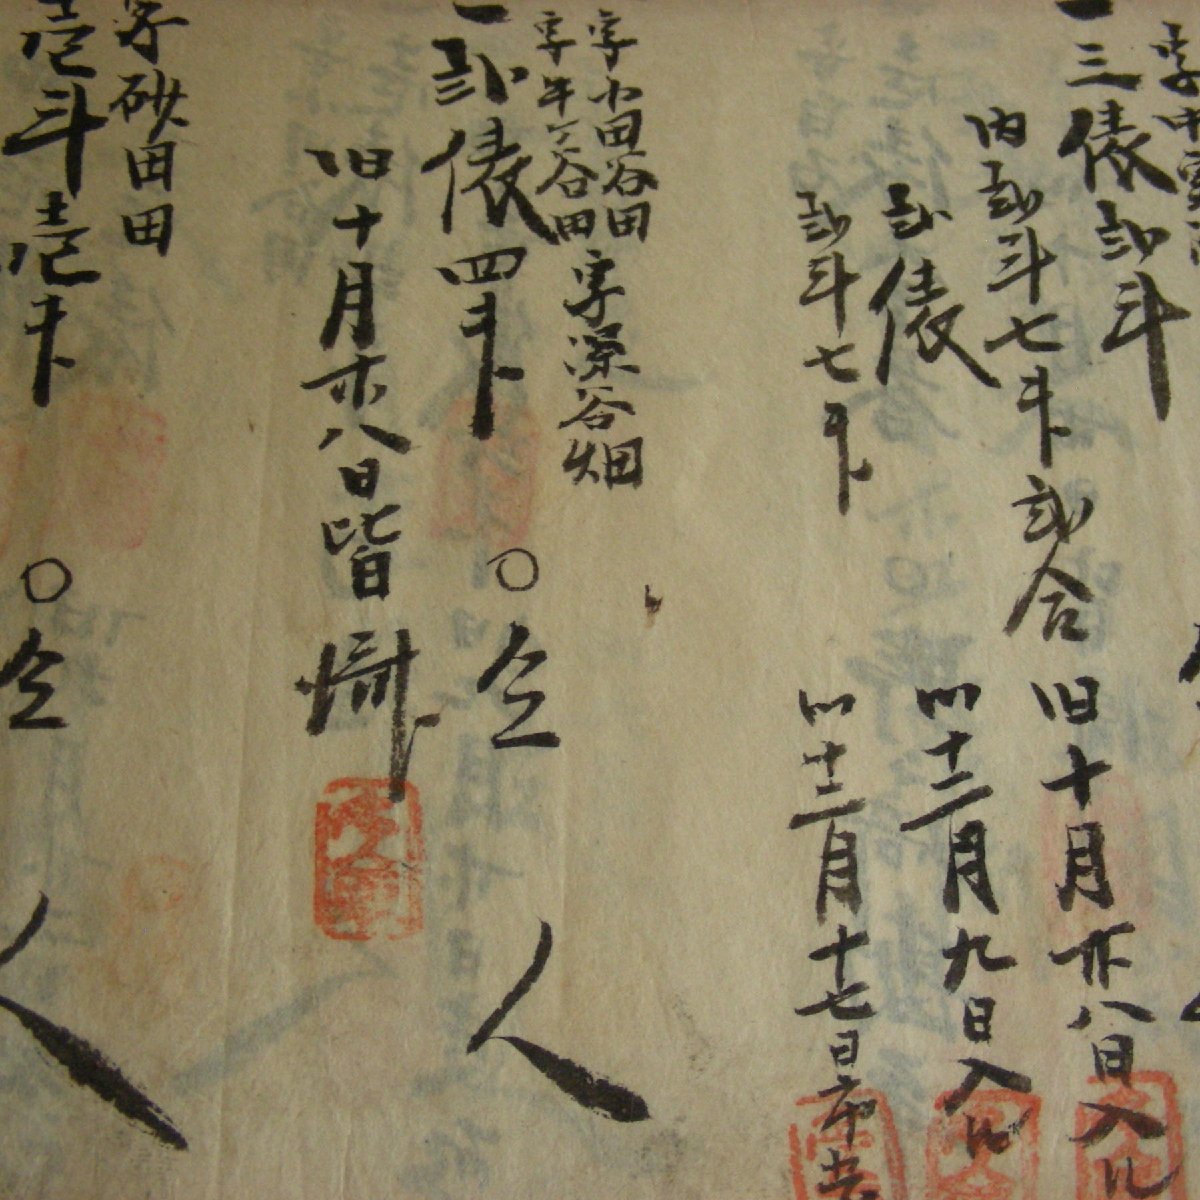 一三俵弐斗
内弐斗七升弐合 旧十月廿八日入
弐俵 〃十二月九日入
弐斗七升 〃十二月十七日
字小田谷田
字年ノ谷田 字深谷畑
一弐俵四升 〇仝人
旧十月廿八日皆
字砂田田
壱斗壱升 〇仝人